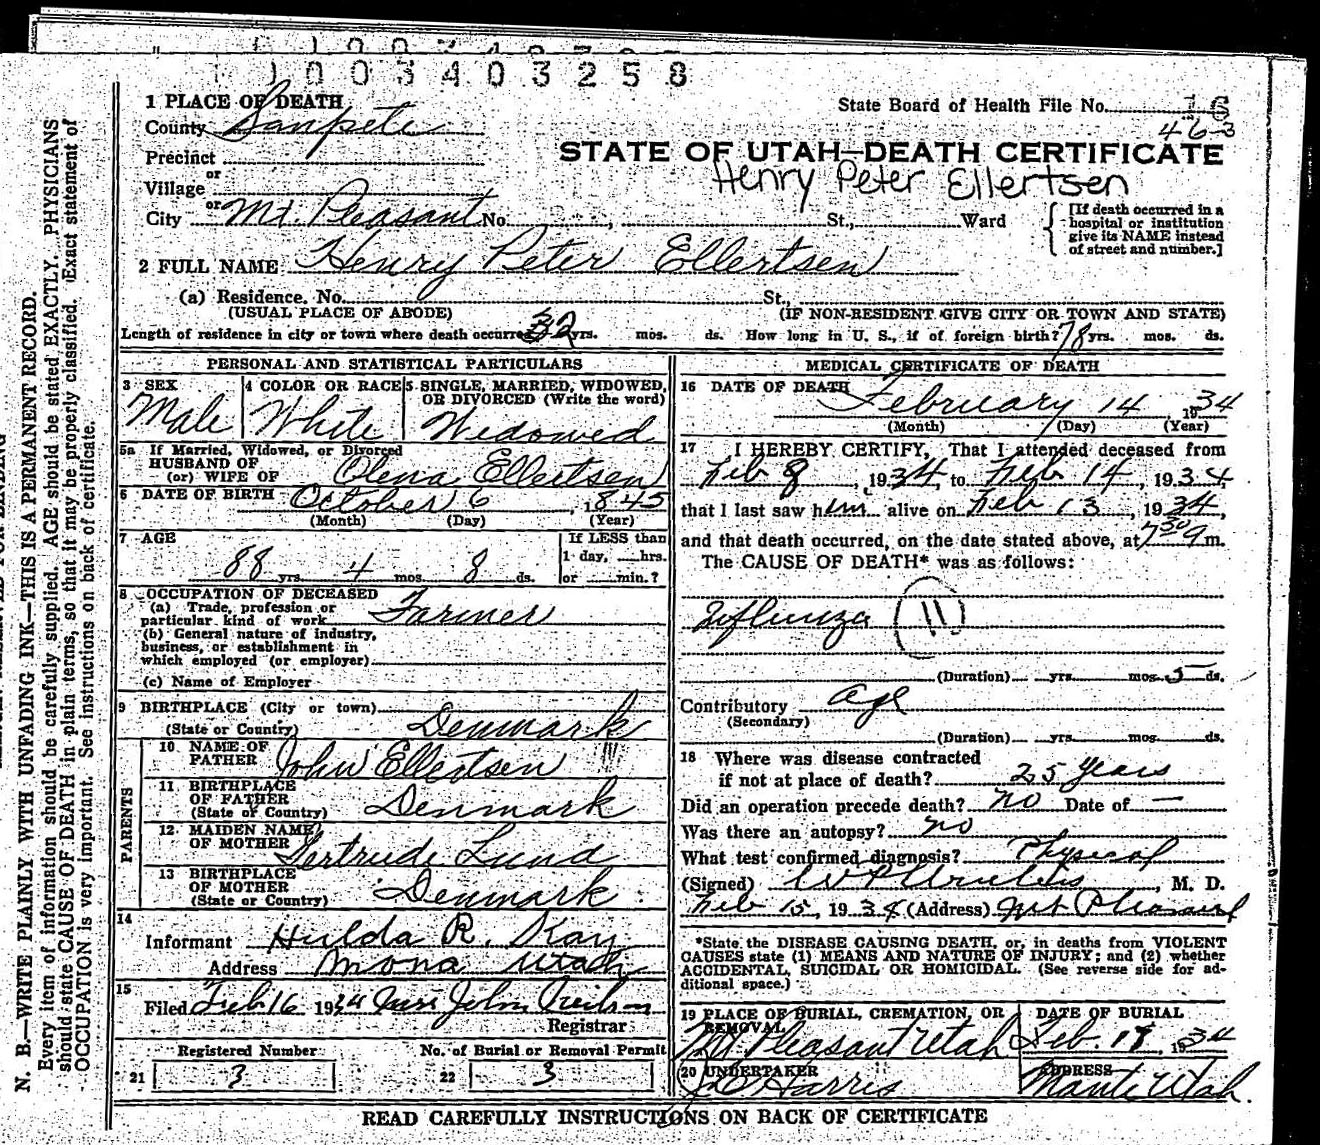 1003403258
1 PLACE OF DEATH
County Sanpete
State Board of Health File No. 16
463
STATE OF UTAH—DEATH CERTIFICATE
Henry Peter Ellertsen
Precinct
or
Village
or
City Mt. Pleasant No. , St., Ward
[If death occurred in a
hospital or institution
give its NAME instead
of street and number.]
2 FULL NAME Henry Peter Ellertsen
(a) Residence. No. St.,
(USUAL PLACE OF ABODE) (IF NON-RESIDENT GIVE CITY OR TOWN AND STATE)
Length of residence in city or town where death occurred 32 yrs. mos. ds. How long in U. S., if of foreign birth? 78 yrs. mos. ds.
PERSONAL AND STATISTICAL PARTICULARS
3 SEX
Male
4 COLOR OR RACE
White
5 SINGLE, MARRIED, WIDOWED,
OR DIVORCED (Write the word)
Widowed
5a If Married, Widowed, or Divorced
HUSBAND OF
(or) WIFE OF Olena Ellertsen
6 DATE OF BIRTH October 6, 1845
(Month) (Day) (Year)
7 AGE
88 yrs. 4 mos. 8 ds.
If LESS than
1 day, hrs.
or min.?
8 OCCUPATION OF DECEASED
(a) Trade, profession or
particular kind of work Farmer
(b) General nature of industry,
business, or establishment in
which employed (or employer)
(c) Name of Employer
9 BIRTHPLACE (City or town)
(State or Country) Denmark
PARENTS
10 NAME OF
FATHER John Ellertsen
11 BIRTHPLACE
OF FATHER
(State or Country) Denmark
12 MAIDEN NAME
OF MOTHER Gertrude Lund
13 BIRTHPLACE
OF MOTHER
(State or Country) Denmark
14
Informant Hulda R. Kay
Address Mona Utah
15
Filed Feb 16 1934 John
Registrar
Registered Number
21 3
No. of Burial or Removal Permit
22 3
MEDICAL CERTIFICATE OF DEATH
16 DATE OF DEATH
February 14, 1934
(Month) (Day) (Year)
17 I HEREBY CERTIFY, That I attended deceased from
Feb 8, 1934, to Feb 14, 1934,
that I last saw him alive on Feb 13, 1934,
and that death occurred, on the date stated above, at 7 30 m.
The CAUSE OF DEATH* was as follows:
Influenza 11
(Duration) yrs. mos. 5 ds.
Contributory age
(Secondary)
(Duration) yrs. mos. ds.
18 Where was disease contracted
if not at place of death? 25 years
Did an operation precede death? no Date of —
Was there an autopsy? no
What test confirmed diagnosis? Physical
(Signed) , M. D.
Feb 15, 1934 (Address) Mt Pleasant
*State the DISEASE CAUSING DEATH, or, in deaths from VIOLENT
CAUSES state (1) MEANS AND NATURE OF INJURY; and (2) whether
ACCIDENTAL, SUICIDAL OR HOMICIDAL. (See reverse side for ad-
ditional space.)
19 PLACE OF BURIAL, CREMATION, OR
REMOVAL
Mt Pleasant Utah
DATE OF BURIAL
Feb. 1934
20 UNDERTAKER
Harris
ADDRESS
Manti Utah.
READ CAREFULLY INSTRUCTIONS ON BACK OF CERTIFICATE
N. B.—WRITE PLAINLY WITH UNFADING INK—THIS IS A PERMANENT RECORD.
Every item of information should be carefully supplied. AGE should be stated EXACTLY. PHYSICIANS
should state CAUSE OF DEATH in plain terms, so that it may be properly classified. Exact statement of
OCCUPATION is very important. See instructions on back of certificate.